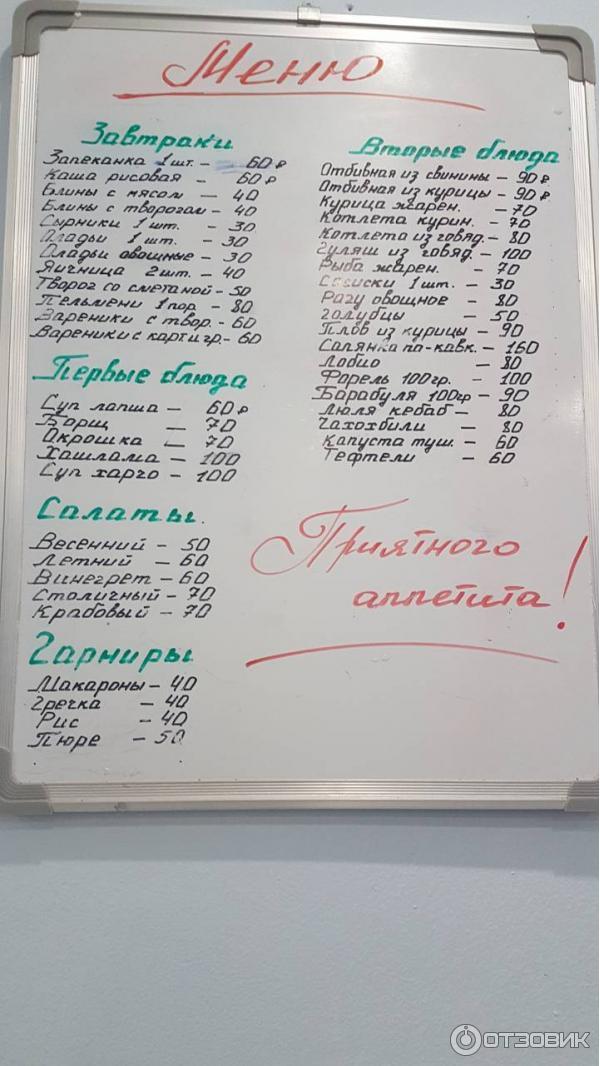 Меню
Завтраки
Запеканка 1 шт. - 60 ₽
Каша рисовая - 60 ₽
Блины с мясом - 40
Блины с творогом - 40
Сырники 1 шт. - 30
Оладьи 1 шт. - 30
Оладьи овощные - 30
Яичница 2 шт. - 40
Творог со сметаной - 50
Пельмени 1 пор. - 80
Вареники с твор. - 60
Вареники с карт и гр. - 60
Первые блюда
Суп лапша - 60 ₽
Борщ - 70
Окрошка - 70
Хашлама - 100
Суп харчо - 100
Салаты
Весенний - 50
Летний - 60
Винегрет - 60
Столичный - 70
Крабовый - 70
Гарниры
Макароны - 40
Гречка - 40
Рис - 40
Пюре - 50
Вторые блюда
Отбивная из свинины - 90 ₽
Отбивная из курицы - 90 ₽
Курица жарен. - 70
Котлета курин. - 70
Котлета из говяд. - 80
Гуляш из говяд. - 100
Рыба жарен. - 70
Сосиски 1 шт. - 30
Рагу овощное - 80
Голубцы - 50
Плов из курицы - 90
Салянка по-кавк. - 160
Лобио - 80
Форель 100 гр. - 100
Барабуля 100 гр - 90
Люля кебаб - 80
Чахохбили - 80
Капуста туш. - 60
Тефтели - 60
Приятного
аппетита!
ОТЗОВИК